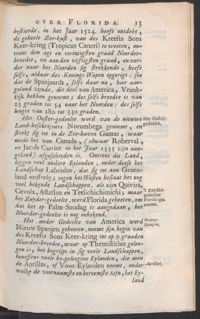 OVER FLORIDA. 23
bestierde, in het Jaar 1524. heeft ontdekt,
de geheele Zee-kust, van des Kreefts Sons
Keer-kring (Tropicus Cancri) te weeten,
ten aan den vyftigsten graad, en ver-
der naar het Noorden sig strekkende, heeft
selfs, aldaar des Konings Wapen opgerigt: so
dat de Spanjaarden, hier aan-
geland zynde, dit deel van America, Vrank-
ryk hebben genoemt; de selfs breedte is van
25 graden tot 54 naar het Noorden; de selfs
lengte van 280 tot 330 graden.
Het Ooster-gedeelte werd van de nieuwe
Land-beschryvers Norumbega genoemt, en
strekt sig tot in de Zee-haven Gamas, waar
mede het van Canada, (alwaar Roberval,
en Jacob Cartier in het Jaar 1535 zyn aan-
geland) afgescheyden is. Ontrent dit Land,
leggen veel andere Eylanden, onder deese het
Landschap Labrador, dat sig tot aan Groen-
land uytstrekt; tegen het Westen bestaat het
veel bekende Landschappen, als zyn Quivira,
Cevola, Astatlan en Terlichichimichi; maar
het Zuyder-gedeelte, werd Florida geheeten, om
dat het op Palm-Sondag is aangedaan, het
Noorder-gedeelte is nog onbekend.
Het ander Gedeelte van America werd
Nieuw Spanjen geheeten, neemt sijn begin van
des Kreefts Sons Keer-kring tot op 9 graaden
Noorder-breedte, waar op Themistitan gelee-
gen is, het begrypt in sig veele Landschappen,
beneffens veele by-geleegene Eylanden, die men
de Antilles, of Voor-Eylanden noemt, onder
welke de voornaamste en beroemste zyn, het Ey-
land
Het Ooster-
gedeelte.
't Zuyder-
gedeelte
Florida ge-
noemt.
Nieuw-
Spanjen.
Antilles.